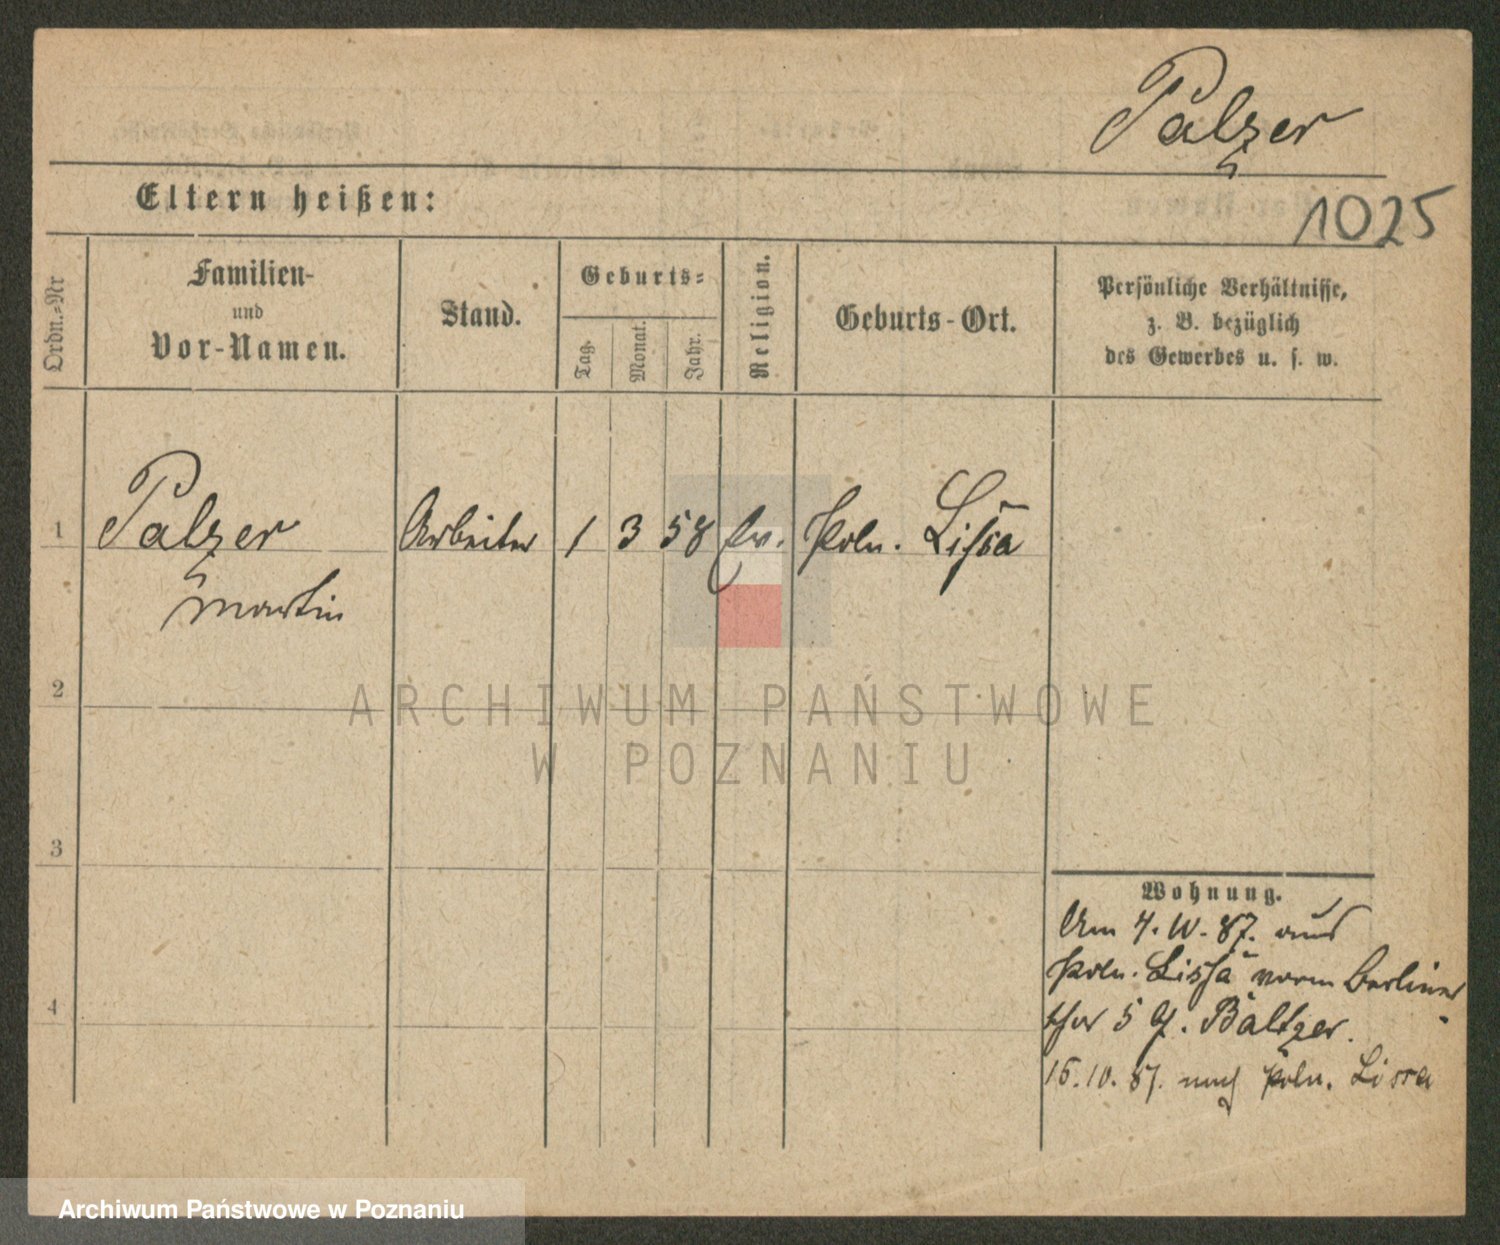 Palzer
Eltern heißen:
1025
Ordn.-Nr
Familien-
und
Vor-Namen.
Stand.
Geburts-
Tag.
Monat.
Jahr.
Religion.
Geburts-Ort.
Persönliche Verhältnisse,
z. B. bezüglich
des Gewerbes u. s. w.
1
Palzer
Martin
Arbeiter
1
3
58
ev.
Poln. Lissa
2
3
4
Wohnung.
Um 4. 87. aus
Poln. Lissa vorm Berliner
thor 5 Baltzer.
15.10.87. nach Poln. Lissa
ARCHIWUM PAŃSTWOWE
W POZNANIU
Archiwum Państwowe w Poznaniu